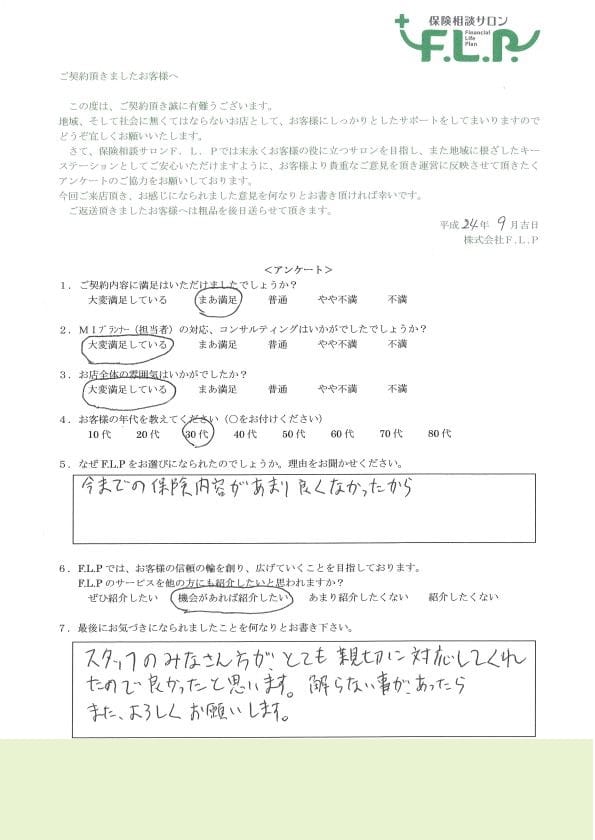 保険相談サロン
F.L.P.
Financial
Life
Plan
ご契約頂きましたお客様へ
この度は、ご契約頂き誠に有難うございます。
地域、そして社会に無くてはならないお店として、お客様にしっかりとしたサポートをしてまいりますので
どうぞ宜しくお願いいたします。
さて、保険相談サロンF．L．Pでは末永くお客様の役に立つサロンを目指し、また地域に根ざしたキー
ステーションとしてご安心いただけますように、お客様より貴重なご意見を頂き運営に反映させて頂きたく
アンケートのご協力をお願いしております。
今回ご来店頂き、お感じになられました意見を何なりとお書き頂ければ幸いです。
ご返送頂きましたお客様へは粗品を後日送らせて頂きます。
平成 24年 9月吉日
株式会社F.L.P
＜アンケート＞
1．ご契約内容に満足はいただけましたでしょうか？
大変満足している まあ満足 普通 やや不満 不満
2．MIプランナー（担当者）の対応、コンサルティングはいかがでしたでしょうか？
大変満足している まあ満足 普通 やや不満 不満
3．お店全体の雰囲気はいかがでしたか？
大変満足している まあ満足 普通 やや不満 不満
4．お客様の年代を教えてください（○をお付けください）
10代 20代 30代 40代 50代 60代 70代 80代
5．なぜF.L.Pをお選びになられたのでしょうか。理由をお聞かせください。
今までの保険内容があまり良くなかったから
6．F.L.Pでは、お客様の信頼の輪を創り、広げていくことを目指しております。
F.L.Pのサービスを他の方にも紹介したいと思われますか？
ぜひ紹介したい 機会があれば紹介したい あまり紹介したくない 紹介したくない
7．最後にお気づきになられましたことを何なりとお書き下さい。
スタッフのみなさん方が、とても親切に対応してくれ
たので良かったと思います。解らない事が、あったら
また、よろしくお願いします。